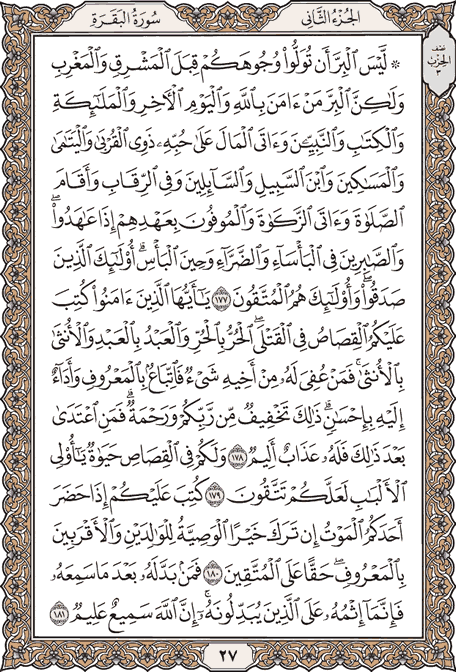 سُورَةُ البَقَرَةِ
الجُزْءُ الثَّانِي
نصف
الحزب
٣
۞ لَّيْسَ ٱلْبِرَّ أَن تُوَلُّوا۟ وُجُوهَكُمْ قِبَلَ ٱلْمَشْرِقِ وَٱلْمَغْرِبِ
وَلَٰكِنَّ ٱلْبِرَّ مَنْ ءَامَنَ بِٱللَّهِ وَٱلْيَوْمِ ٱلْءَاخِرِ وَٱلْمَلَٰٓئِكَةِ
وَٱلْكِتَٰبِ وَٱلنَّبِيِّۦنَ وَءَاتَى ٱلْمَالَ عَلَىٰ حُبِّهِۦ ذَوِى ٱلْقُرْبَىٰ وَٱلْيَتَٰمَىٰ
وَٱلْمَسَٰكِينَ وَٱبْنَ ٱلسَّبِيلِ وَٱلسَّآئِلِينَ وَفِى ٱلرِّقَابِ وَأَقَامَ
ٱلصَّلَوٰةَ وَءَاتَى ٱلزَّكَوٰةَ وَٱلْمُوفُونَ بِعَهْدِهِمْ إِذَا عَٰهَدُوا۟ ۖ
وَٱلصَّٰبِرِينَ فِى ٱلْبَأْسَآءِ وَٱلضَّرَّآءِ وَحِينَ ٱلْبَأْسِ ۗ أُو۟لَٰٓئِكَ ٱلَّذِينَ
صَدَقُوا۟ ۖ وَأُو۟لَٰٓئِكَ هُمُ ٱلْمُتَّقُونَ ١٧٧ يَٰٓأَيُّهَا ٱلَّذِينَ ءَامَنُوا۟ كُتِبَ
عَلَيْكُمُ ٱلْقِصَاصُ فِى ٱلْقَتْلَى ۖ ٱلْحُرُّ بِٱلْحُرِّ وَٱلْعَبْدُ بِٱلْعَبْدِ وَٱلْأُنثَىٰ
بِٱلْأُنثَىٰ ۚ فَمَنْ عُفِىَ لَهُۥ مِنْ أَخِيهِ شَىْءٌ فَٱتِّبَاعٌۢ بِٱلْمَعْرُوفِ وَأَدَآءٌ
إِلَيْهِ بِإِحْسَٰنٍ ۗ ذَٰلِكَ تَخْفِيفٌ مِّن رَّبِّكُمْ وَرَحْمَةٌ ۗ فَمَنِ ٱعْتَدَىٰ
بَعْدَ ذَٰلِكَ فَلَهُۥ عَذَابٌ أَلِيمٌ ١٧٨ وَلَكُمْ فِى ٱلْقِصَاصِ حَيَوٰةٌ يَٰٓأُو۟لِى
ٱلْأَلْبَٰبِ لَعَلَّكُمْ تَتَّقُونَ ١٧٩ كُتِبَ عَلَيْكُمْ إِذَا حَضَرَ
أَحَدَكُمُ ٱلْمَوْتُ إِن تَرَكَ خَيْرًا ٱلْوَصِيَّةُ لِلْوَٰلِدَيْنِ وَٱلْأَقْرَبِينَ
بِٱلْمَعْرُوفِ ۖ حَقًّا عَلَى ٱلْمُتَّقِينَ ١٨٠ فَمَنۢ بَدَّلَهُۥ بَعْدَ مَا سَمِعَهُۥ
فَإِنَّمَآ إِثْمُهُۥ عَلَى ٱلَّذِينَ يُبَدِّلُونَهُۥٓ ۚ إِنَّ ٱللَّهَ سَمِيعٌ عَلِيمٌ ١٨١
٢٧